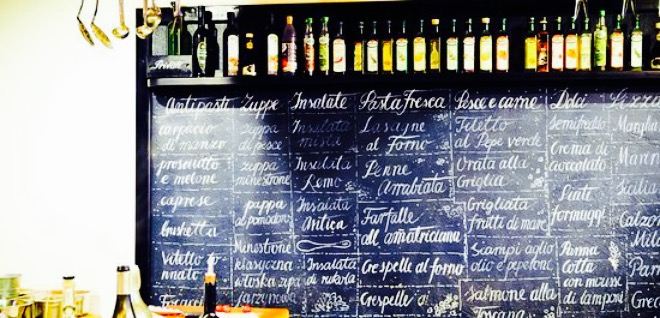 Antipasti
carpaccio
di manzo
prosciutto
e melone
caprese
brushetta
Vitello
nnato
Zuppe
zuppa
di pesce
zuppa
minestrone
pappa
al pomodoro
Minestrone
klasyczna
włoska zupa
jarzynowa
Insalate
Insalata
mista
Insalata
Romo
Insalata
Antica
Insalata
di rucola
Pasta fresca
Lasagne
al Forno
Penne
Arrabiata
Farfalle
all amatriciana
Crespelle al forno
Crespelle al
Pesce e carne
Filetto
al Pepe verde
Orata alla
Griglia
Grigliata
frutti di mare
Scampi aglio
olio e peperone
Salmone alla
Toscana
Dolci
Semifreddo
Crema di
cioccolato
formaggi
Panna
Cotta
con mousse
di lamponi
Pizza
Margh
Mari
Sicilia
Calzon
Mila
Par